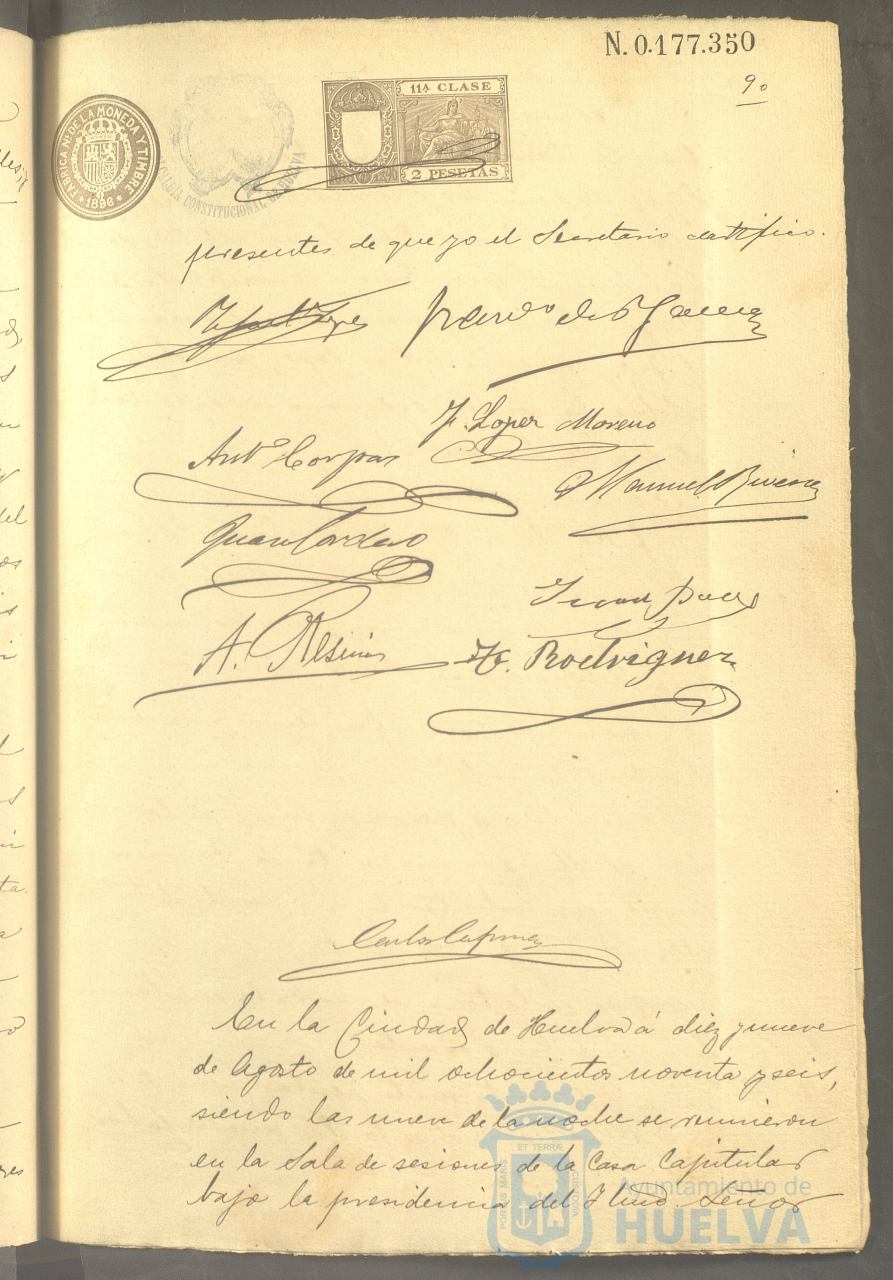 N. 0.177.350
90
FABRICA NL. DE LA MONEDA Y TIMBRE
1896
ALCALDIA CONSTITUCIONAL DE HUELVA
11ª CLASE
2 PESETAS
presentes de que yo el Secretario certifico.
F. Lopez Moreno
Antº Corpas
Manuel Rivera
Juan Cordero
A. Resin
F. Rodriguez
Carlos
En la Ciudad de Huelva á diez y nueve
de Agosto de mil ochocientos noventa y seis,
siendo las nueve de la noche se reunieron
en la Sala de sesiones de la Casa Capitular
bajo la presidencia del Iltmo. Señor
PORTUS MARIS
ET TERRÆ
CUSTODIA
Ayuntamiento de
HUELVA